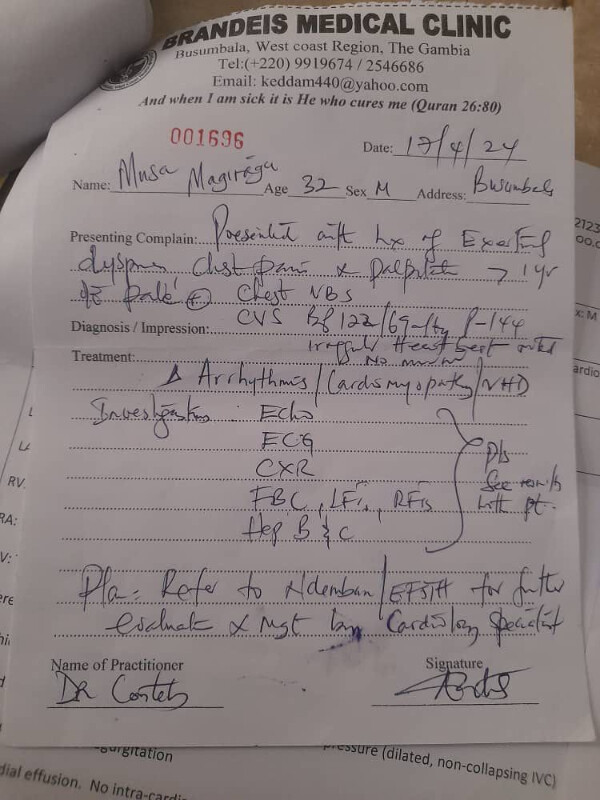 BRANDEIS MEDICAL CLINIC
Busumbala, West coast Region, The Gambia
Tel:(+220) 9919674 / 2546686
Email: keddam440@yahoo.com
And when I am sick it is He who cures me (Quran 26:80)
001696
Date: 17/4/24
Name: Musa Age 32 Sex M Address:
Presenting Complain: Presented with hx of
Chest pain & > 1yr
Chest NBS
Diagnosis / Impression: CVS BP 122/69 P-144
Irregular Heart beat noted
Treatment: No murmur
Δ Arrhythmia/Cardiomyopathy/VHD
Investigation: Echo
ECG
CXR
FBC, LFTs, RFTs
Hep B & C
Pls
See results
with pt.
Plan: Refer to Ndemban/EFSTH for further
evaluate & Mgt by Cardiology Specialist
Name of Practitioner
Signature
DR
2123
x: M
ardio
RV.
RA:
V:
gurgitation
ressure (dilated, non-collapsing IVC)
dial effusion. No intra-cardia